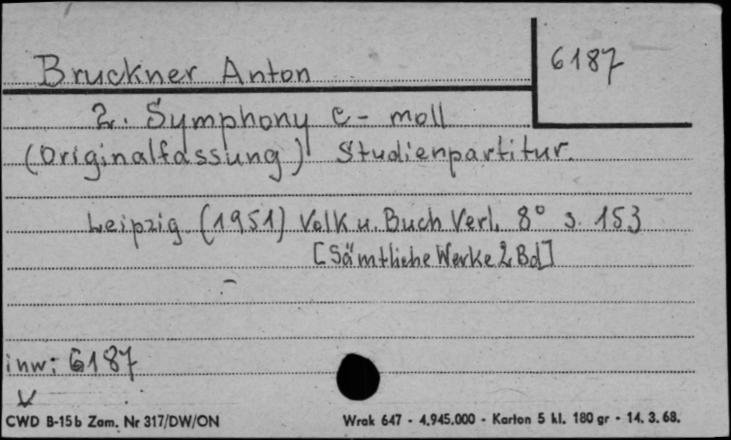 Bruckner Anton
6187
2. Symphony c-moll
(Originalfassung) Studienpartitur.
Leipzig (1951) Volk u. Buch Verl. 8° s. 153
[Sämtliche Werke 2 Bd]
inw: 6187
CWD B-15b Zam. Nr 317/DW/ON
Wrak 647 - 4.945.000 - Karton 5 kl. 180 gr - 14. 3. 68.